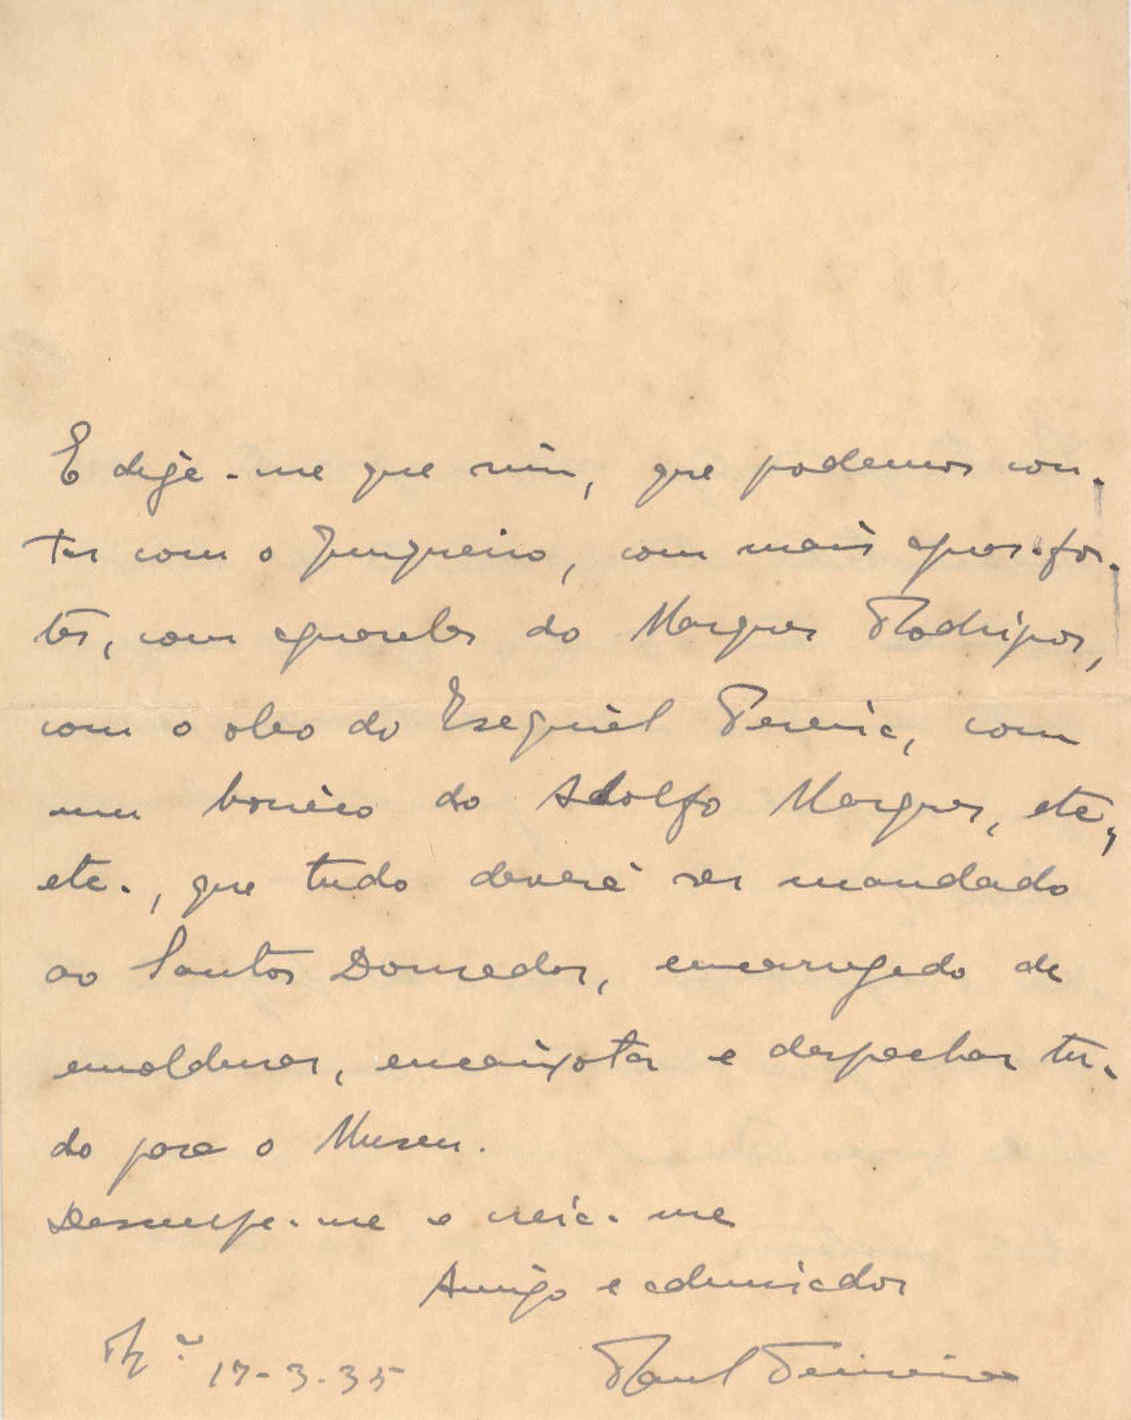 E diga-me que sim, que podemos con-
tar com o Junqueiro, com mais aguas-for-
tes, com aguarelas do Marques Rodrigues,
com o oleo do Esequiel Pereira, com
um boneco do Adolfo Marques, etc,
etc., que tudo deverá ser mandado
ao Santos Dourador, encarregado de
emoldurar, encaixotar e despachar tu-
do para o Museu.
Desculpe-me e creia-me
Amigo e admirador
17-3-35 Raul